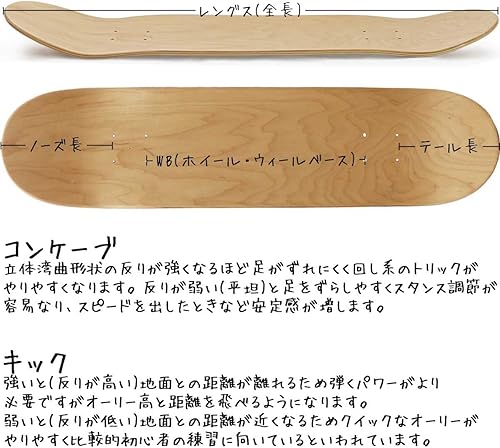 レングス(全長)
ノーズ長
WB(ホイール・ウィールベース)
テール長
コンケーブ
立体湾曲形状の反りが強くなるほど足がずれにくく回し系のトリックが
やりやすくなります。反りが弱い(平坦)と足をずらしやすくスタンス調節が
容易なり、スピードを出したときなど安定感が増します。
キック
強いと(反りが高い)地面との距離が離れるため弾くパワーがより
必要ですがオーリー高と距離を飛べるようになります。
弱いと(反りが低い)地面との距離が近くなるためクイックなオーリーが
やりやすく比較的初心者の練習に向いているといわれています。